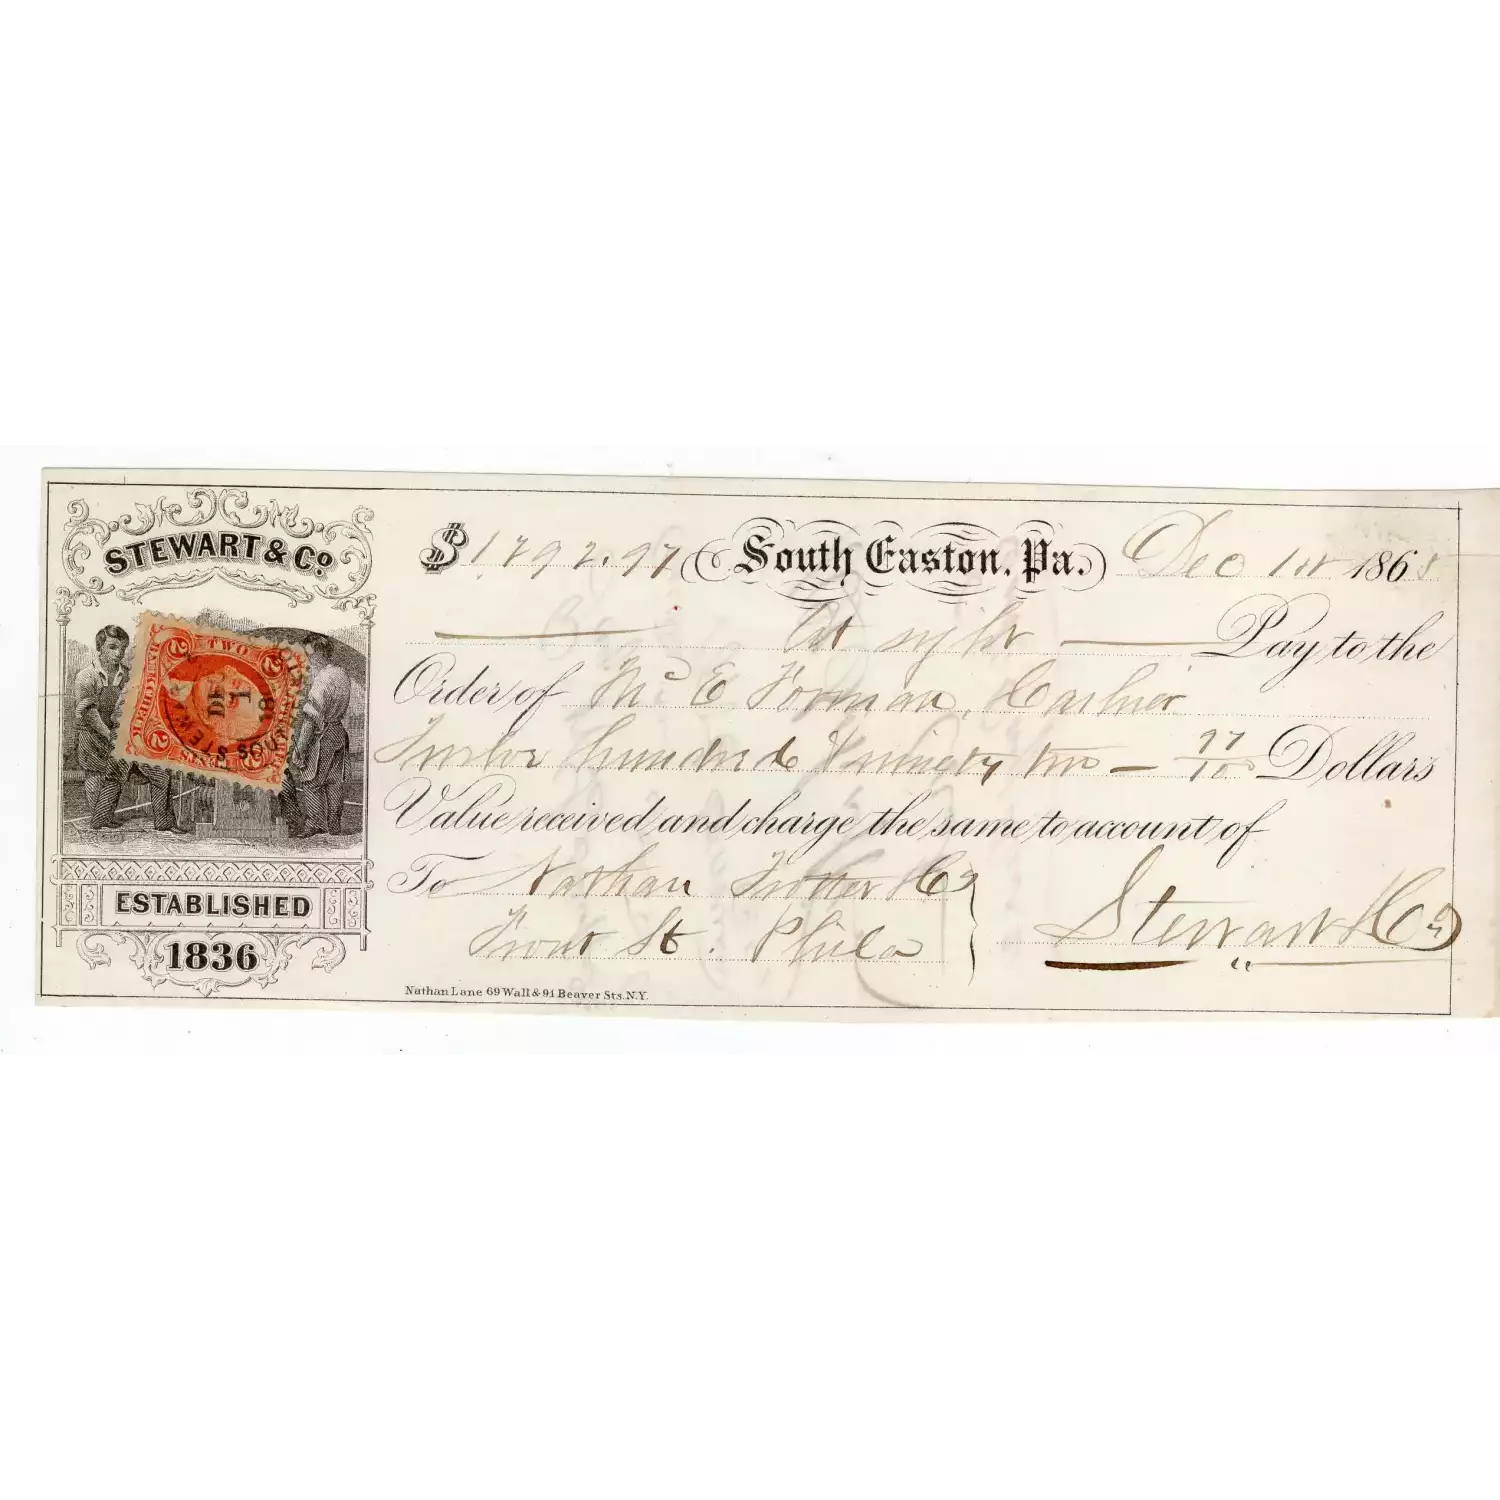 STEWART & Co.
$1292.97 South Easton, Pa. Dec 1st 1865
At sight Pay to the
Order of McE Forman, Cashier
Twelve hundred & ninety two — 97/100 Dollars
Value received and charge the same to account of
To Nathan Trotter & Co
Stewart & Co
Front St. Phila
TWO
2 2
STEWART
DEC
1
18
SOUTH EASTON
2 2
ESTABLISHED
1836
Nathan Lane 69 Wall & 91 Beaver Sts. N.Y.